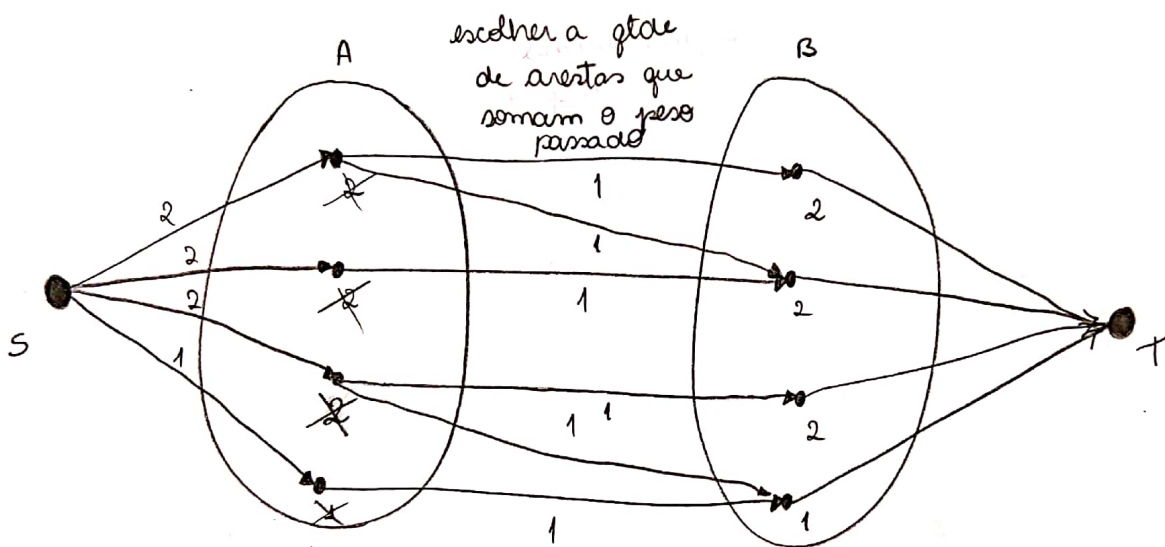 escolher a qtde
de arestas que
somam o peso
passado
A
B
S
T
2
2
2
1
2
2
2
1
1
1
1
1
1
1
2
2
2
1